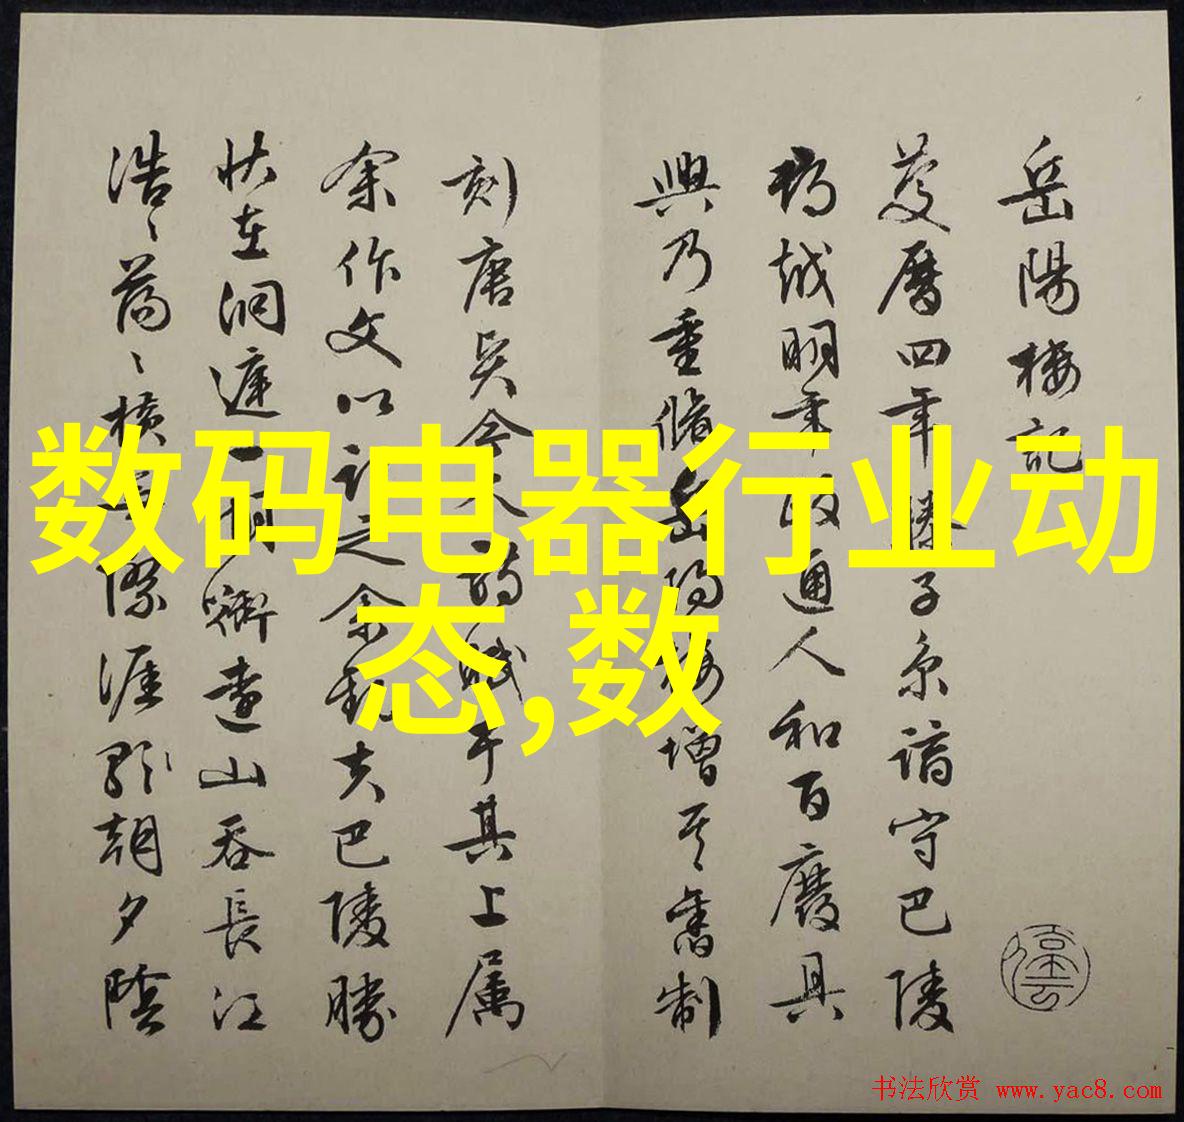 数码电器行业动
态,数
岳陽樓記
慶曆四年滕子京謫守巴陵
郡越明年政通人和百廢具
興乃重脩岳陽樓增其舊制
刻唐賢今人詩賦于其上屬
余作文以記之余觀夫巴陵勝
狀在洞庭一湖銜遠山吞長江
浩〻蕩〻橫無際涯朝夕陰
书法欣赏 www.yac8.com